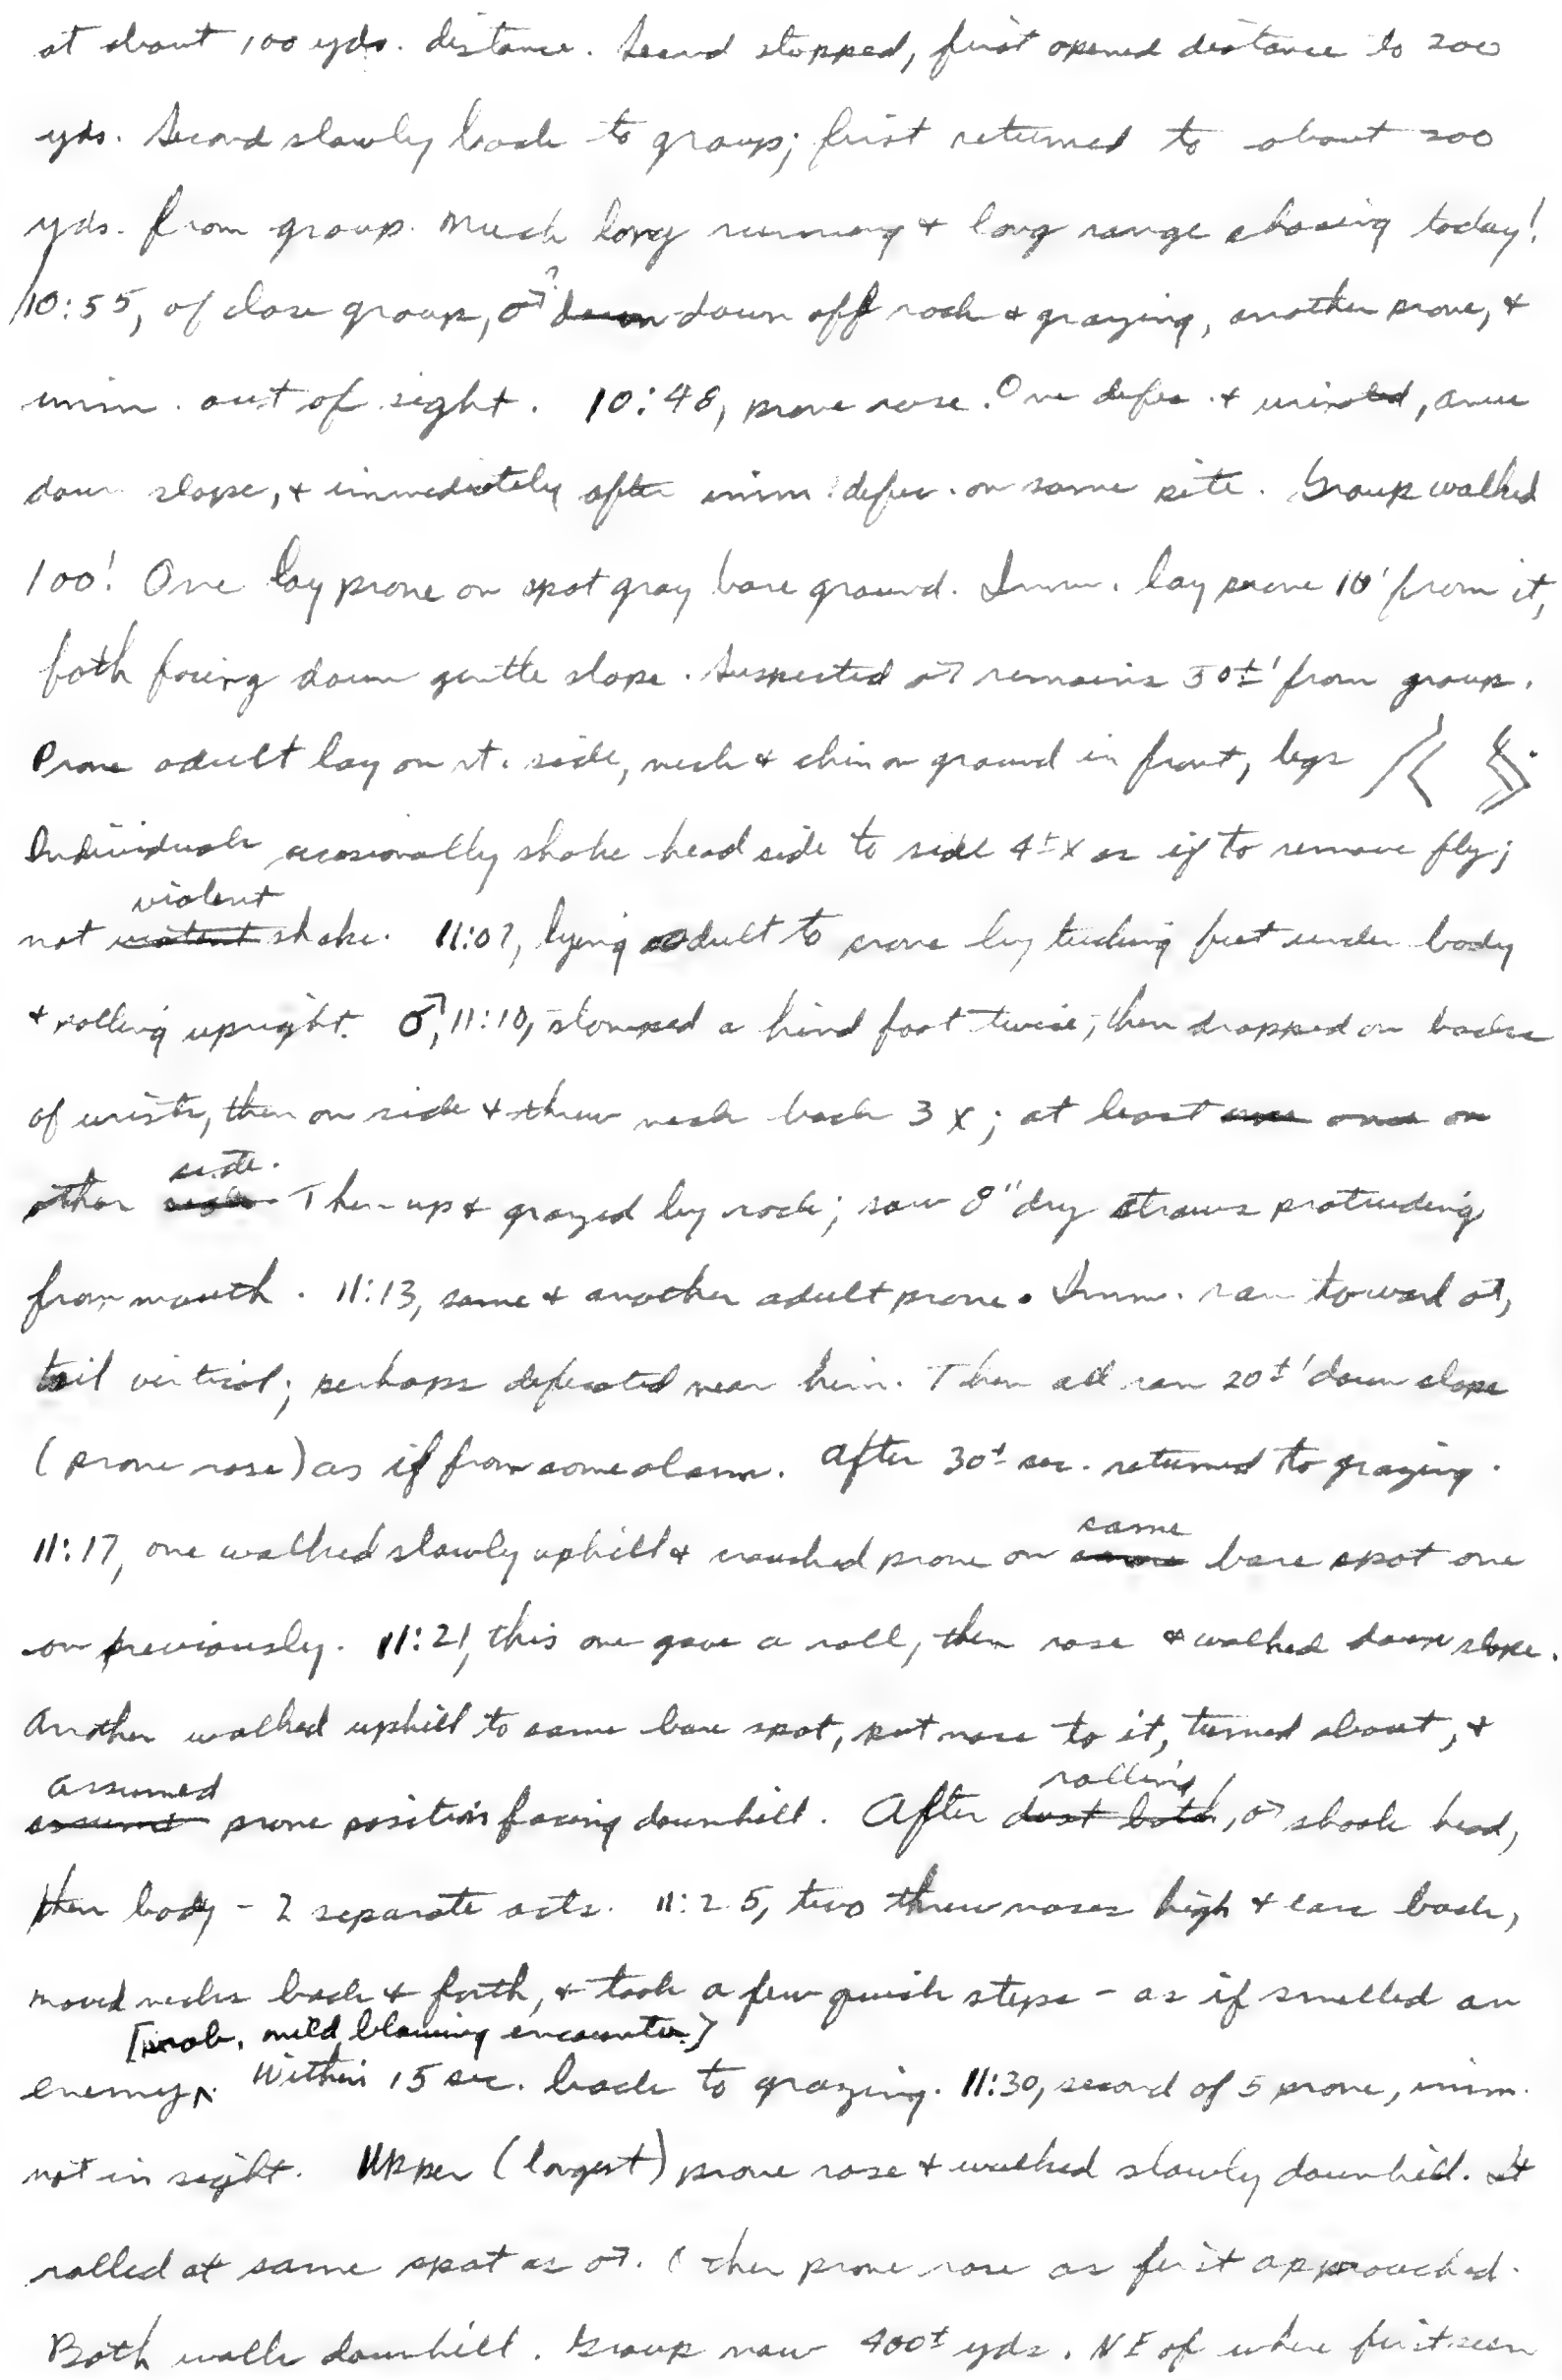 at about 100 yds. distance. Second stopped, first opened distance to 200
yds. Second slowly back to group; first returned to about 200
yds. from group. Much long running & long range chasing today!
10:55, of close group, ♂? down down off rock & grazing, another prone, &
imm. out of sight. 10:48, prone rose. One defec. & urinated, anus
down slope, & immediately after imm. defec. on same site. Group walked
100'. One lay prone on spot gray bare ground. Imm. lay prone 10' from it,
both facing down gentle slope. Suspected ♂ remains 50±' from group.
Prone adult lay on rt. side, neck & chin on ground in front, legs
Individuals occasionally shake head side to side 4±x as if to remove fly;
violent
not violent shake. 11:07, lying adult to prone by tucking feet under body
& rolling upright. ♂, 11:10, stomped a hind foot twice, then dropped on backs
of wrists, then on side & threw neck back 3 x; at least once on
side.
other side. Then up & grazed by rock; saw 8" dry straws protruding
from mouth. 11:13, same & another adult prone. Imm. ran toward ♂,
tail vertical; perhaps defecated near him. Then all ran 20±' down slope
(prone rose) as if from some alarm. After 30± sec. returned to grazing.
same
11:17, one walked slowly uphill & crouched prone on same bare spot one
on previously. 11:21, this one gave a roll, then rose & walked down slope.
Another walked uphill to same bare spot, put nose to it, turned about, &
assumed rolling
assumed prone position facing downhill. After dust bath, ♂ shook head,
then body - 2 separate acts. 11:25, two threw noses high & ears back,
moved necks back & forth, & took a few quick steps - as if smelled an
[prob. mild blowing encounter]
enemy. Within 15 sec. back to grazing. 11:30, second of 5 prone, imm.
not in sight. Upper (longest) prone rose & walked slowly downhill. It
rolled at same spot as ♂. Other prone rose as first approached.
Both walk downhill. Group now 400± yds. NE of where first seen